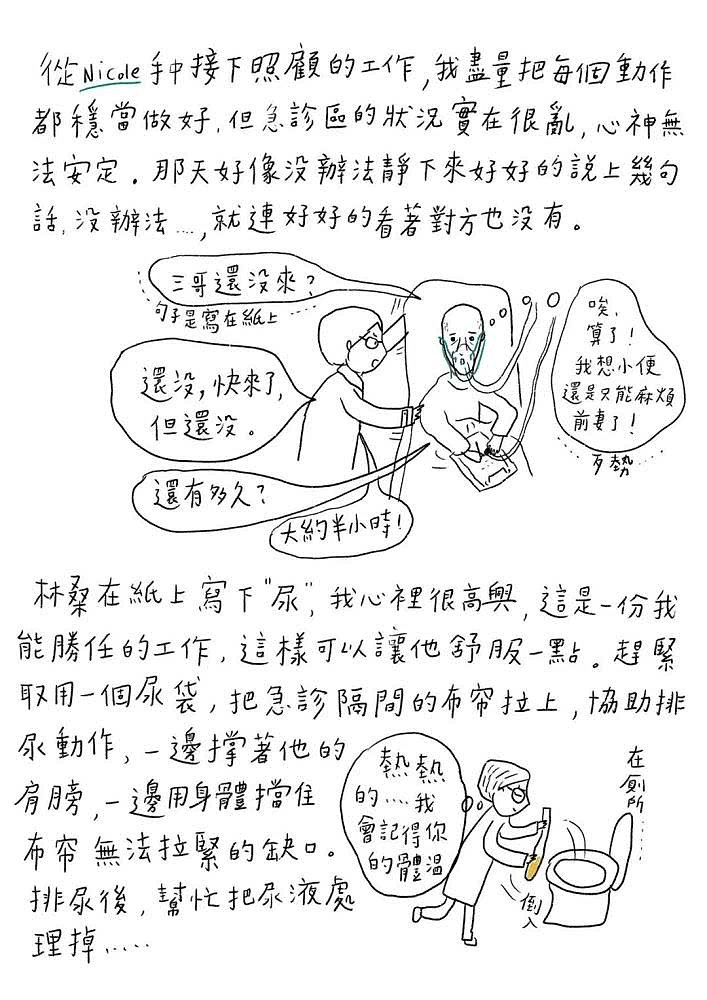 從Nicole手中接下照顧的工作,我盡量把每個動作
都穩當做好,但急診區的狀況實在很亂,心神無
法安定。那天好像沒辦法靜下來好好的說上幾句
話,沒辦法....,就連好好的看著對方也沒有。
三哥還沒來?
句子是寫在紙上
還沒,快來了,
但還沒。
還有多久?
大約半小時!
唉、
算了!
我想小便
還是只能麻煩
前妻了!
歹勢
林桑在紙上寫下"尿",我心裡很高興,這是一份我
能勝任的工作,這樣可以讓他舒服一點。趕緊
取用一個尿袋,把急診隔間的布帘拉上,協助排
尿動作,一邊撐著他的
肩膀,一邊用身體擋住
布帘無法拉緊的缺口。
排尿後,幫忙把尿液處
理掉.....
熱熱
的....我
會記得你
的體溫
在廁所
倒入